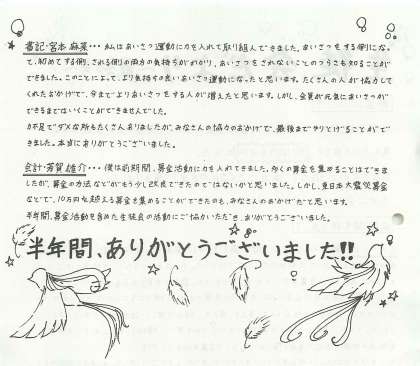 書記・宮本 麻菜・・・私はあいさつ運動に力を入れて取り組んできました。あいさつをする側になっ
て、初めてする側、される側の両方の気持ちがわかり、あいさつをされないことのつらさも知ることが
できました。このことによって、より気持ちの良いあいさつ運動になったと思います。たくさんの人が協力してく
れたおかげで、今までよりあいさつをする人が増えたと思います。しかし、全員が元気にあいさつが
できるまではいくことができませんでした。
力不足でダメな所もたくさんありましたが、みなさんの協力のおかげで、最後までやりとげることがで
きました。本当にありがとうございました。
会計・芳賀 雄介・・・僕は前期間、募金活動に力を入れてきました。多くの募金を集めることはできま
したが、募金の方法などがもう少し改良できたのではないかと思いました。しかし、東日本大震災募金
などで、10万円を超える募金を集めることができたのも、みなさんのおかげだと思います。
半年間、募金活動を含めた生徒会の活動にご協力いただき、ありがとうございました。
半年間、ありがとうございました!!